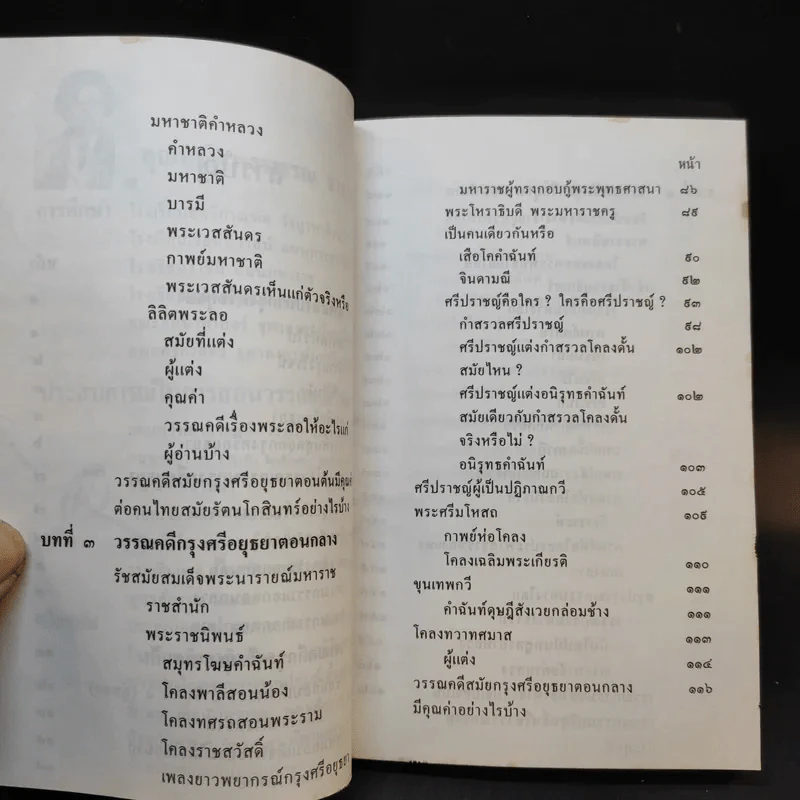 มหาชาติคำหลวง
คำหลวง
มหาชาติ
บารมี
พระเวสสันดร
กาพย์มหาชาติ
พระเวสสันดรเห็นแก่ตัวจริงหรือ
ลิลิตพระลอ
สมัยที่แต่ง
ผู้แต่ง
คุณค่า
วรรณคดีเรื่องพระลอให้อะไรแก่
ผู้อ่านบ้าง
วรรณคดีสมัยกรุงศรีอยุธยาตอนต้นมีคุณค่า
ต่อคนไทยสมัยรัตนโกสินทร์อย่างไรบ้าง
บทที่ ๓ วรรณคดีกรุงศรีอยุธยาตอนกลาง
รัชสมัยสมเด็จพระนารายณ์มหาราช
ราชสำนัก
พระราชนิพนธ์
สมุทรโฆษคำฉันท์
โคลงพาลีสอนน้อง
โคลงทศรถสอนพระราม
โคลงราชสวัสดิ์
เพลงยาวพยากรณ์กรุงศรีอยุธยา
หน้า
มหาราชผู้ทรงกอบกู้พระพุทธศาสนา ๘๖
พระโหราธิบดี พระมหาราชครู ๘๙
เป็นคนเดียวกันหรือ
เสือโคคำฉันท์ ๙๐
จินดามณี ๙๒
ศรีปราชญ์คือใคร ? ใครคือศรีปราชญ์ ? ๙๓
กำสรวลศรีปราชญ์ ๙๘
ศรีปราชญ์แต่งกำสรวลโคลงดั้น ๑๐๒
สมัยไหน ?
ศรีปราชญ์แต่งอนิรุทธคำฉันท์ ๑๐๒
สมัยเดียวกับกำสรวลโคลงดั้น
จริงหรือไม่ ?
อนิรุทธคำฉันท์ ๑๐๓
ศรีปราชญ์ผู้เป็นปฏิภาณกวี ๑๐๕
พระศรีมโหสถ ๑๐๙
กาพย์ห่อโคลง
โคลงเฉลิมพระเกียรติ ๑๑๐
ขุนเทพกวี ๑๑๑
คำฉันท์ดุษฎีสังเวยกล่อมช้าง ๑๑๑
โคลงทวาทศมาส ๑๑๓
ผู้แต่ง ๑๑๔
วรรณคดีสมัยกรุงศรีอยุธยาตอนกลาง ๑๑๖
มีคุณค่าอย่างไรบ้าง